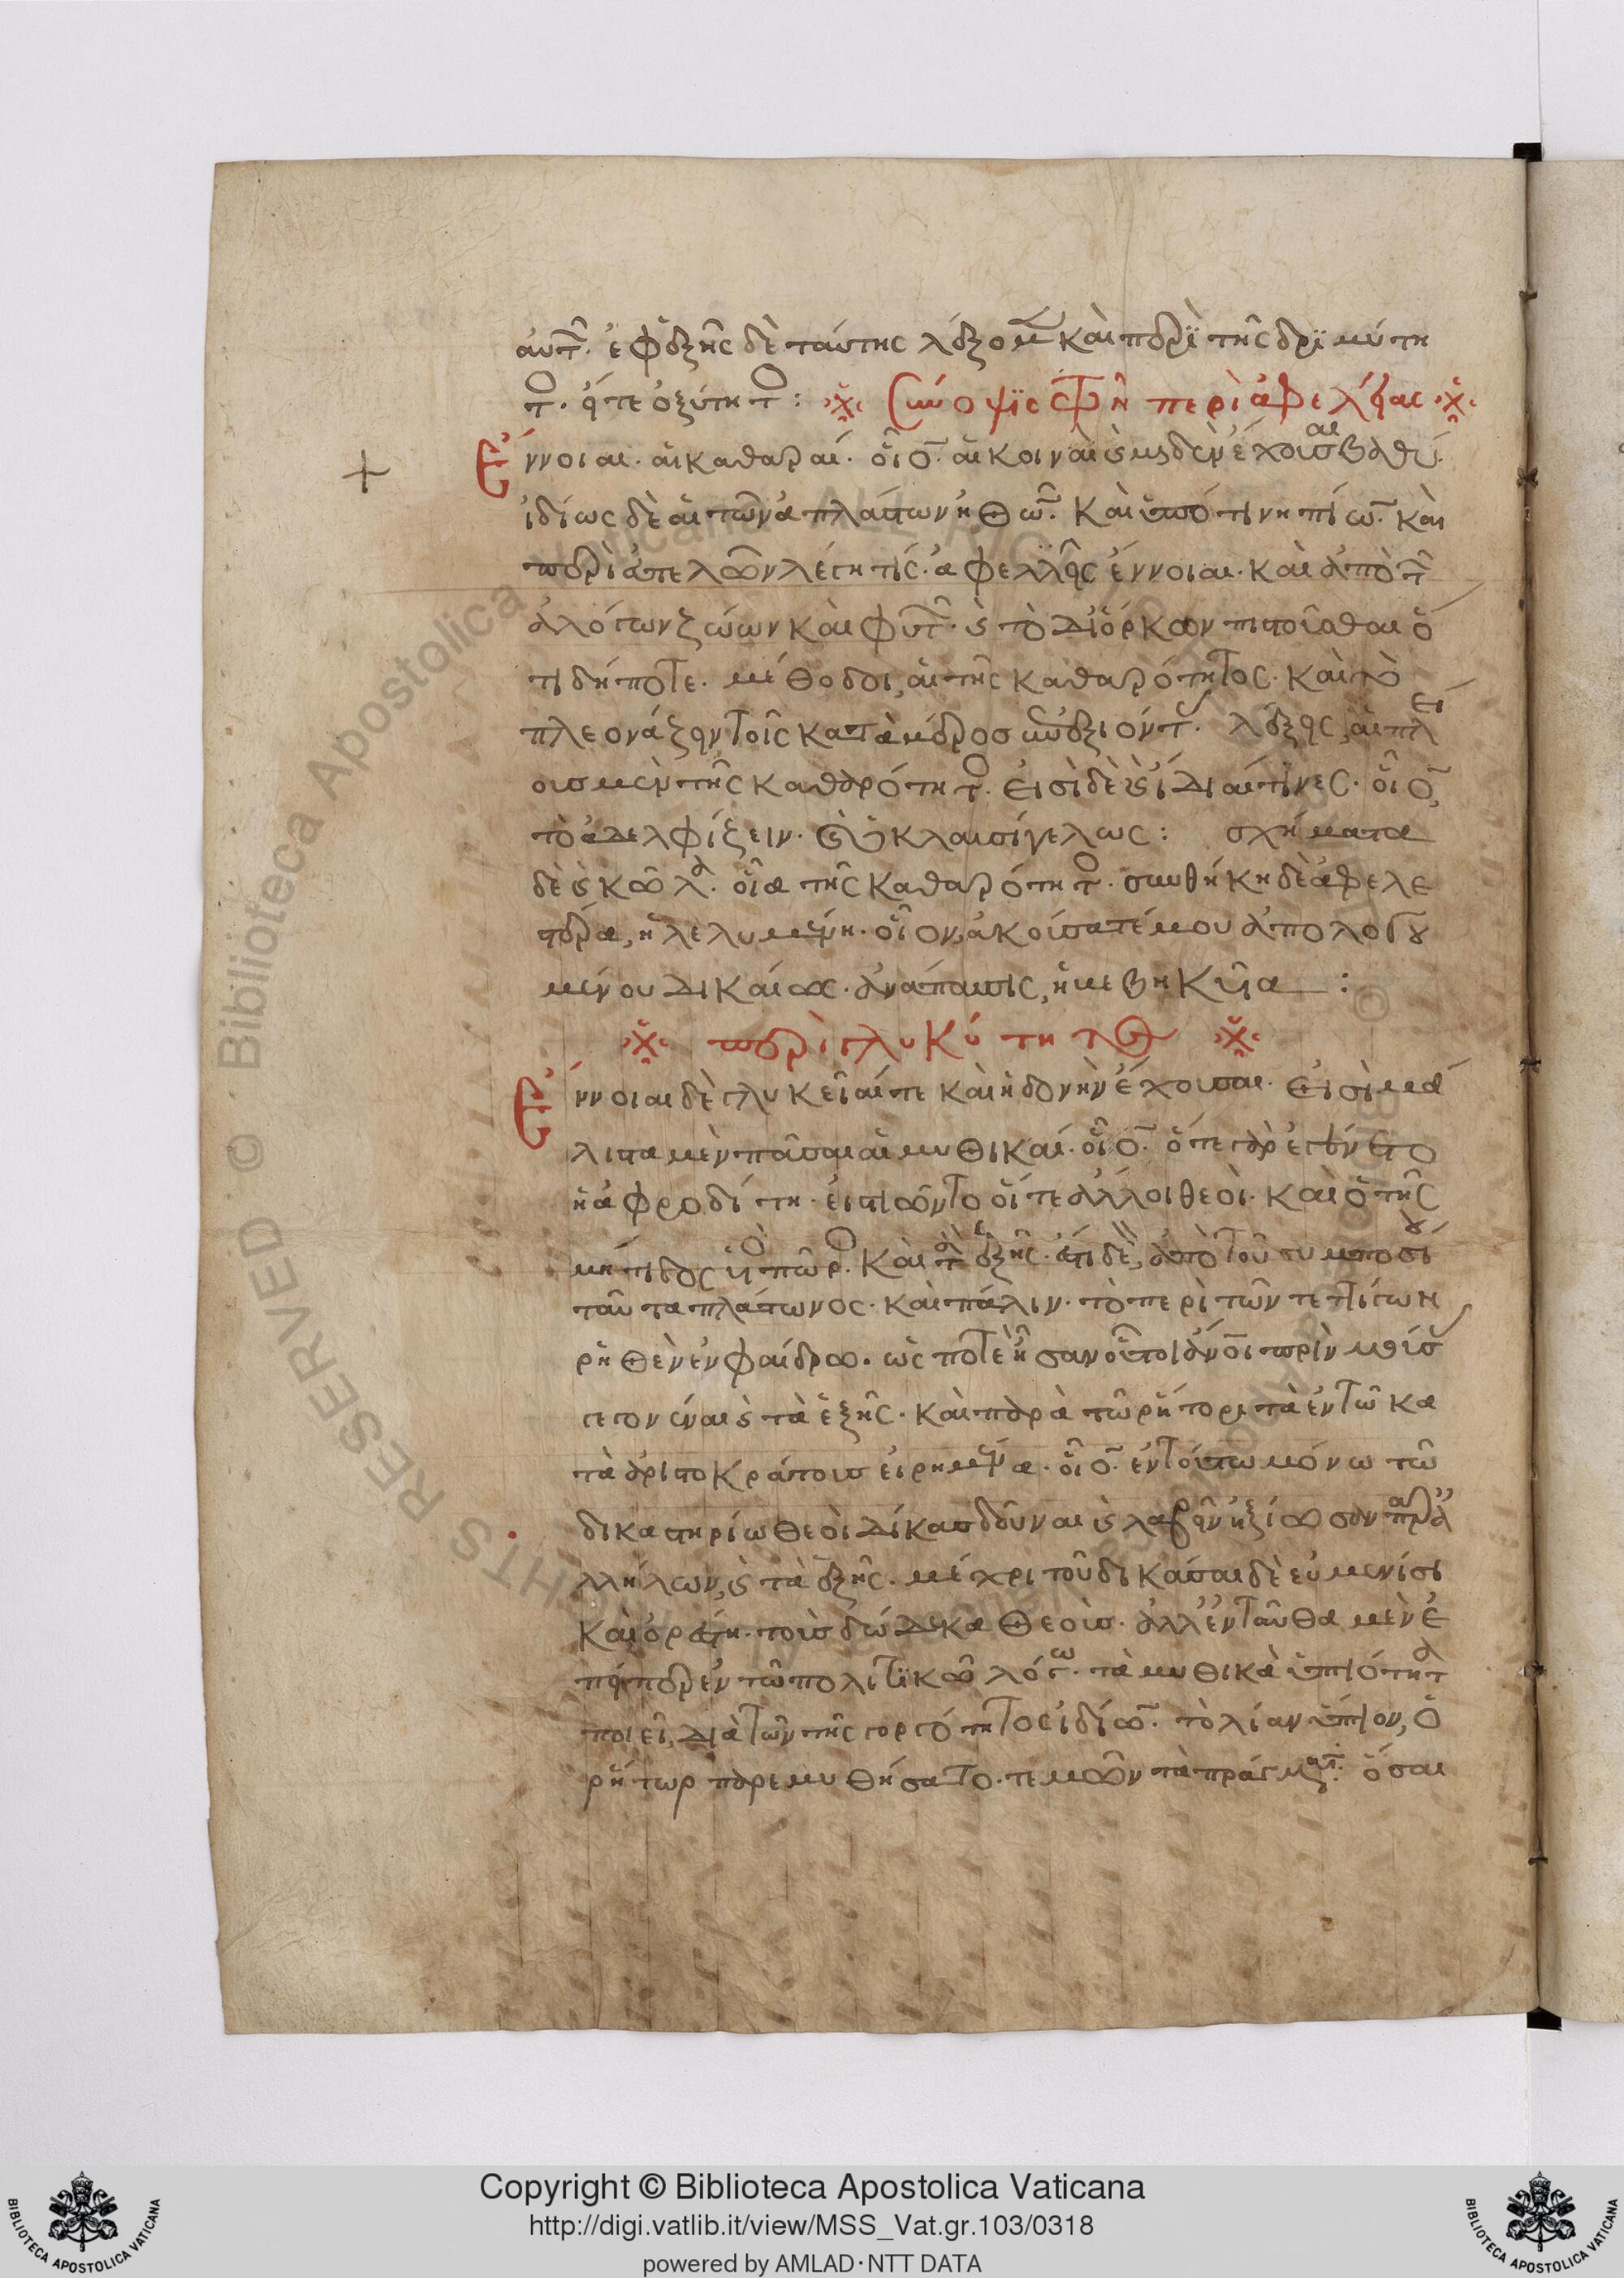 αὐτῶν. ἐφεξῆς δὲ ταύτης λέξομεν καὶ περὶ τῆς δριμύτη
τος. εἴτε ὀξύτητος: Σύνοψις σαφὴ περὶ ἀφελείας
Ἔννοιαι. αἱ καθαραί. οἷον αἱ κοιναὶ καὶ μηδὲν ἔχουσαι βαθύ.
ἰδίως δὲ αἱ τῶν ἀπλάστων ἠθῶν. καὶ ὑπό τι νηπίων. καὶ
περὶ εὐτελῶν λέγῃ τίς. ἀφελεῖς ἔννοιαι. καὶ ἀπὸ τῶν
ἀλόγων ζώων καὶ φυτῶν. καὶ τὸ δι' ὅρκων πιστοῦσθαι ὅ
τι δήποτε. μέθοδοι, αἱ τῆς καθαρότητος. καὶ τὸ
πλεονάζειν τοῖς κατὰ μέρος διεξιόντα. λέξεις, αἱ πλεί
ους μὲν τῆς καθαρότητος. εἰσὶ δὲ καὶ ἴδιαι τινες. οἷον,
τὸ ἀδελφίζειν. καὶ ὁ κλαυσίγελως: σχήματα
δὲ καὶ κῶλα. οἷα τῆς καθαρότητος. συνθήκη δὲ ἀφελε
στέρα, ἡ λελυμένη. οἷον, ἀκούσατέ μου ἀπολογου
μένου δικαίως. ἀνάπαυσις, ἡ βεβηκυῖα:
περὶ γλυκύτητος
Ἔννοιαι δὲ γλυκεῖαί τε καὶ ἡδονὴν ἔχουσαι. εἰσὶ μά
λιστα μὲν πᾶσαι αἱ μυθικαί. οἷον ὅτε γὰρ ἐγένετο
ἡ ἀφροδίτη. εἱστιῶντο οἵ τε ἄλλοι θεοὶ. καὶ ὁ τῆς
μήτιδος υἱὸς πόρος. καὶ τὰ ἑξῆς. ἔστι δὲ, ἀπὸ τοῦ συμποσίου
ταῦτα πλάτωνος. καὶ πάλιν. τὸ περὶ τῶν τεττίγων
ῥηθὲν ἐν φαίδρω. ὡς ποτὲ ἦσαν οὗτοι ἄνοι πρὶν μούσας
γεγονέναι καὶ τὰ ἑξῆς. καὶ παρὰ τῶ ῥήτορι τὰ ἐν τῶ κα
τὰ ἀριστοκράτους εἰρημένα. οἷον ἐν τούτω μόνω τῶ
δικαστηρίω θεοὶ δίκας δοῦναι καὶ λαβεῖν ἠξίωσαν παρ' ἀ
λλήλων, καὶ τὰ ἑξῆς. μέχρι τοῦ δικάσαι δὲ εὐμενίσι
καὶ ὀρέστη. τοὺς δώδεκα θεοὺς. ἀλλ' ἐνταῦθα μὲν ἐ
πείπερ ἐν τῶ πολιτικῶ λόγω. τὰ μυθικὰ ὑπτιότητα
ποιεῖ, διὰ τῶν τῆς γοργότητος ἰδίων. τὸ λίαν ὕπτιον, ὁ
ῥήτωρ παρεμυθήσατο. τεμὼν τὰ πράγματα. ὅσαι
Copyright © Biblioteca Apostolica Vaticana
http://digi.vatlib.it/view/MSS_Vat.gr.103/0318
powered by AMLAD·NTT DATA
BIBLIOTECA APOSTOLICA VATICANA
BIBLIOTECA APOSTOLICA VATICANA